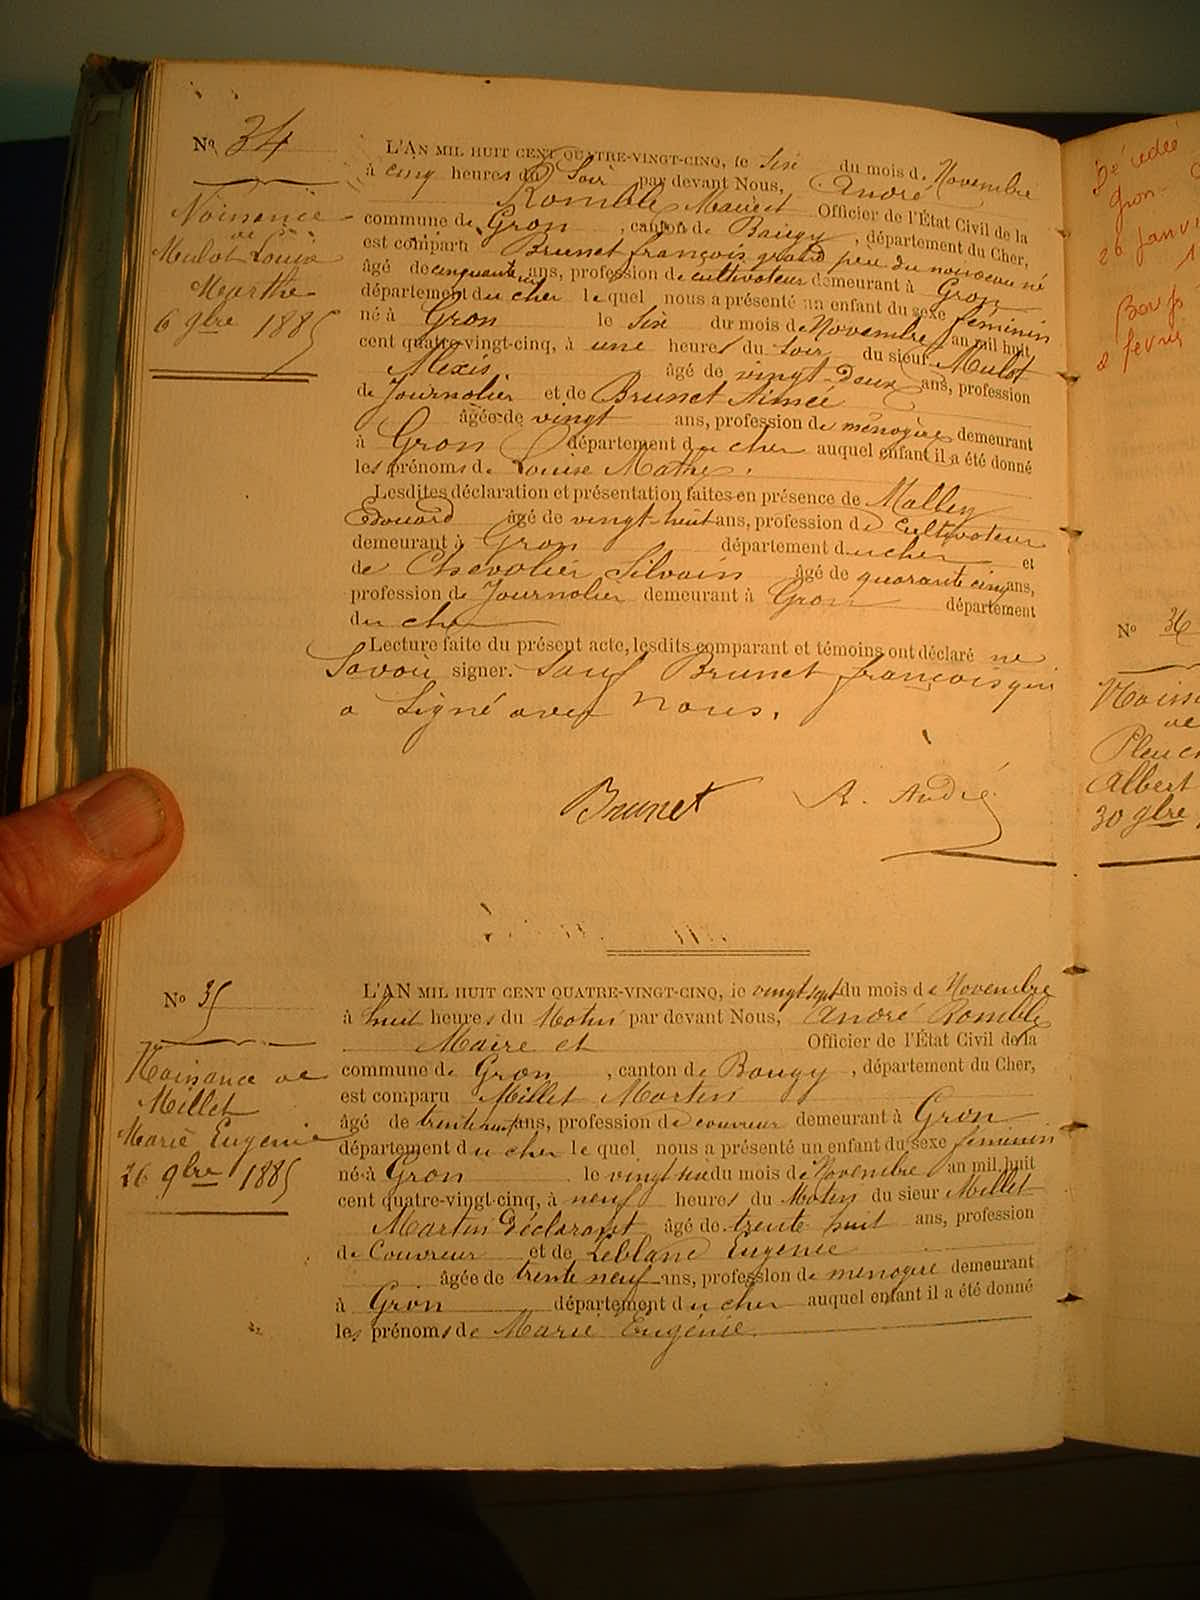 No 34
Naissance
de
Mulot Louise
Marthe
6 9bre 1885
L'AN MIL HUIT CENT QUATRE-VINGT-CINQ, le Six du mois de Novembre
à cinq heures du Soir par devant Nous, André
Romble Maire et Officier de l'État Civil de la
commune de Gron, canton de Baugy, département du Cher,
est comparu Brunet françois grand père du nouveau né
âgé de cinquante ans, profession de cultivateur demeurant à Gron
département du cher lequel nous a présenté un enfant du sexe féminin
né à Gron le Six du mois de Novembre an mil huit
cent quatre-vingt-cinq, à une heures du Soir du sieur Mulot
Alexis, âgé de vingt-deux ans, profession
de Journalier et de Brunet Aimée
âgée de vingt ans, profession de ménagère demeurant
à Gron département du cher auquel enfant il a été donné
les prénoms de Louise Mathe.
Lesdites déclaration et présentation faites en présence de Malley
Edouard âgé de vingt-huit ans, profession de Cultivateur
demeurant à Gron département du cher et
de Chevalier Silvain âgé de quarante cinq ans,
profession de Journalier demeurant à Gron département
du cher
Lecture faite du présent acte, lesdits comparant et témoins ont déclaré ne
Savoir signer. Sauf Brunet françois qui
a Signé avec nous.
Brunet A. André
No 35
Naissance de
Millet
Marie Eugenie
26 9bre 1885
L'AN MIL HUIT CENT QUATRE-VINGT-CINQ, le vingt sept du mois de Novembre
à huit heures du Matin par devant Nous, André Romble
Maire et Officier de l'État Civil de la
commune de Gron, canton de Baugy, département du Cher,
est comparu Millet Martin
âgé de trente huit ans, profession de couvreur demeurant à Gron
département du cher lequel nous a présenté un enfant du sexe féminin
né à Gron le vingt six du mois de Novembre an mil huit
cent quatre-vingt-cinq, à neuf heures du Matin du sieur Millet
Martin Déclarant âgé de trente huit ans, profession
de Couvreur et de Leblanc Eugenie
âgée de trente neuf ans, profession de ménagère demeurant
à Gron département du cher auquel enfant il a été donné
les prénoms de Marie Eugénie.
Décédée
Gron
26 janvi
Bourges
2 fevrier
No 36
Naiss
de
Albert
30 9bre